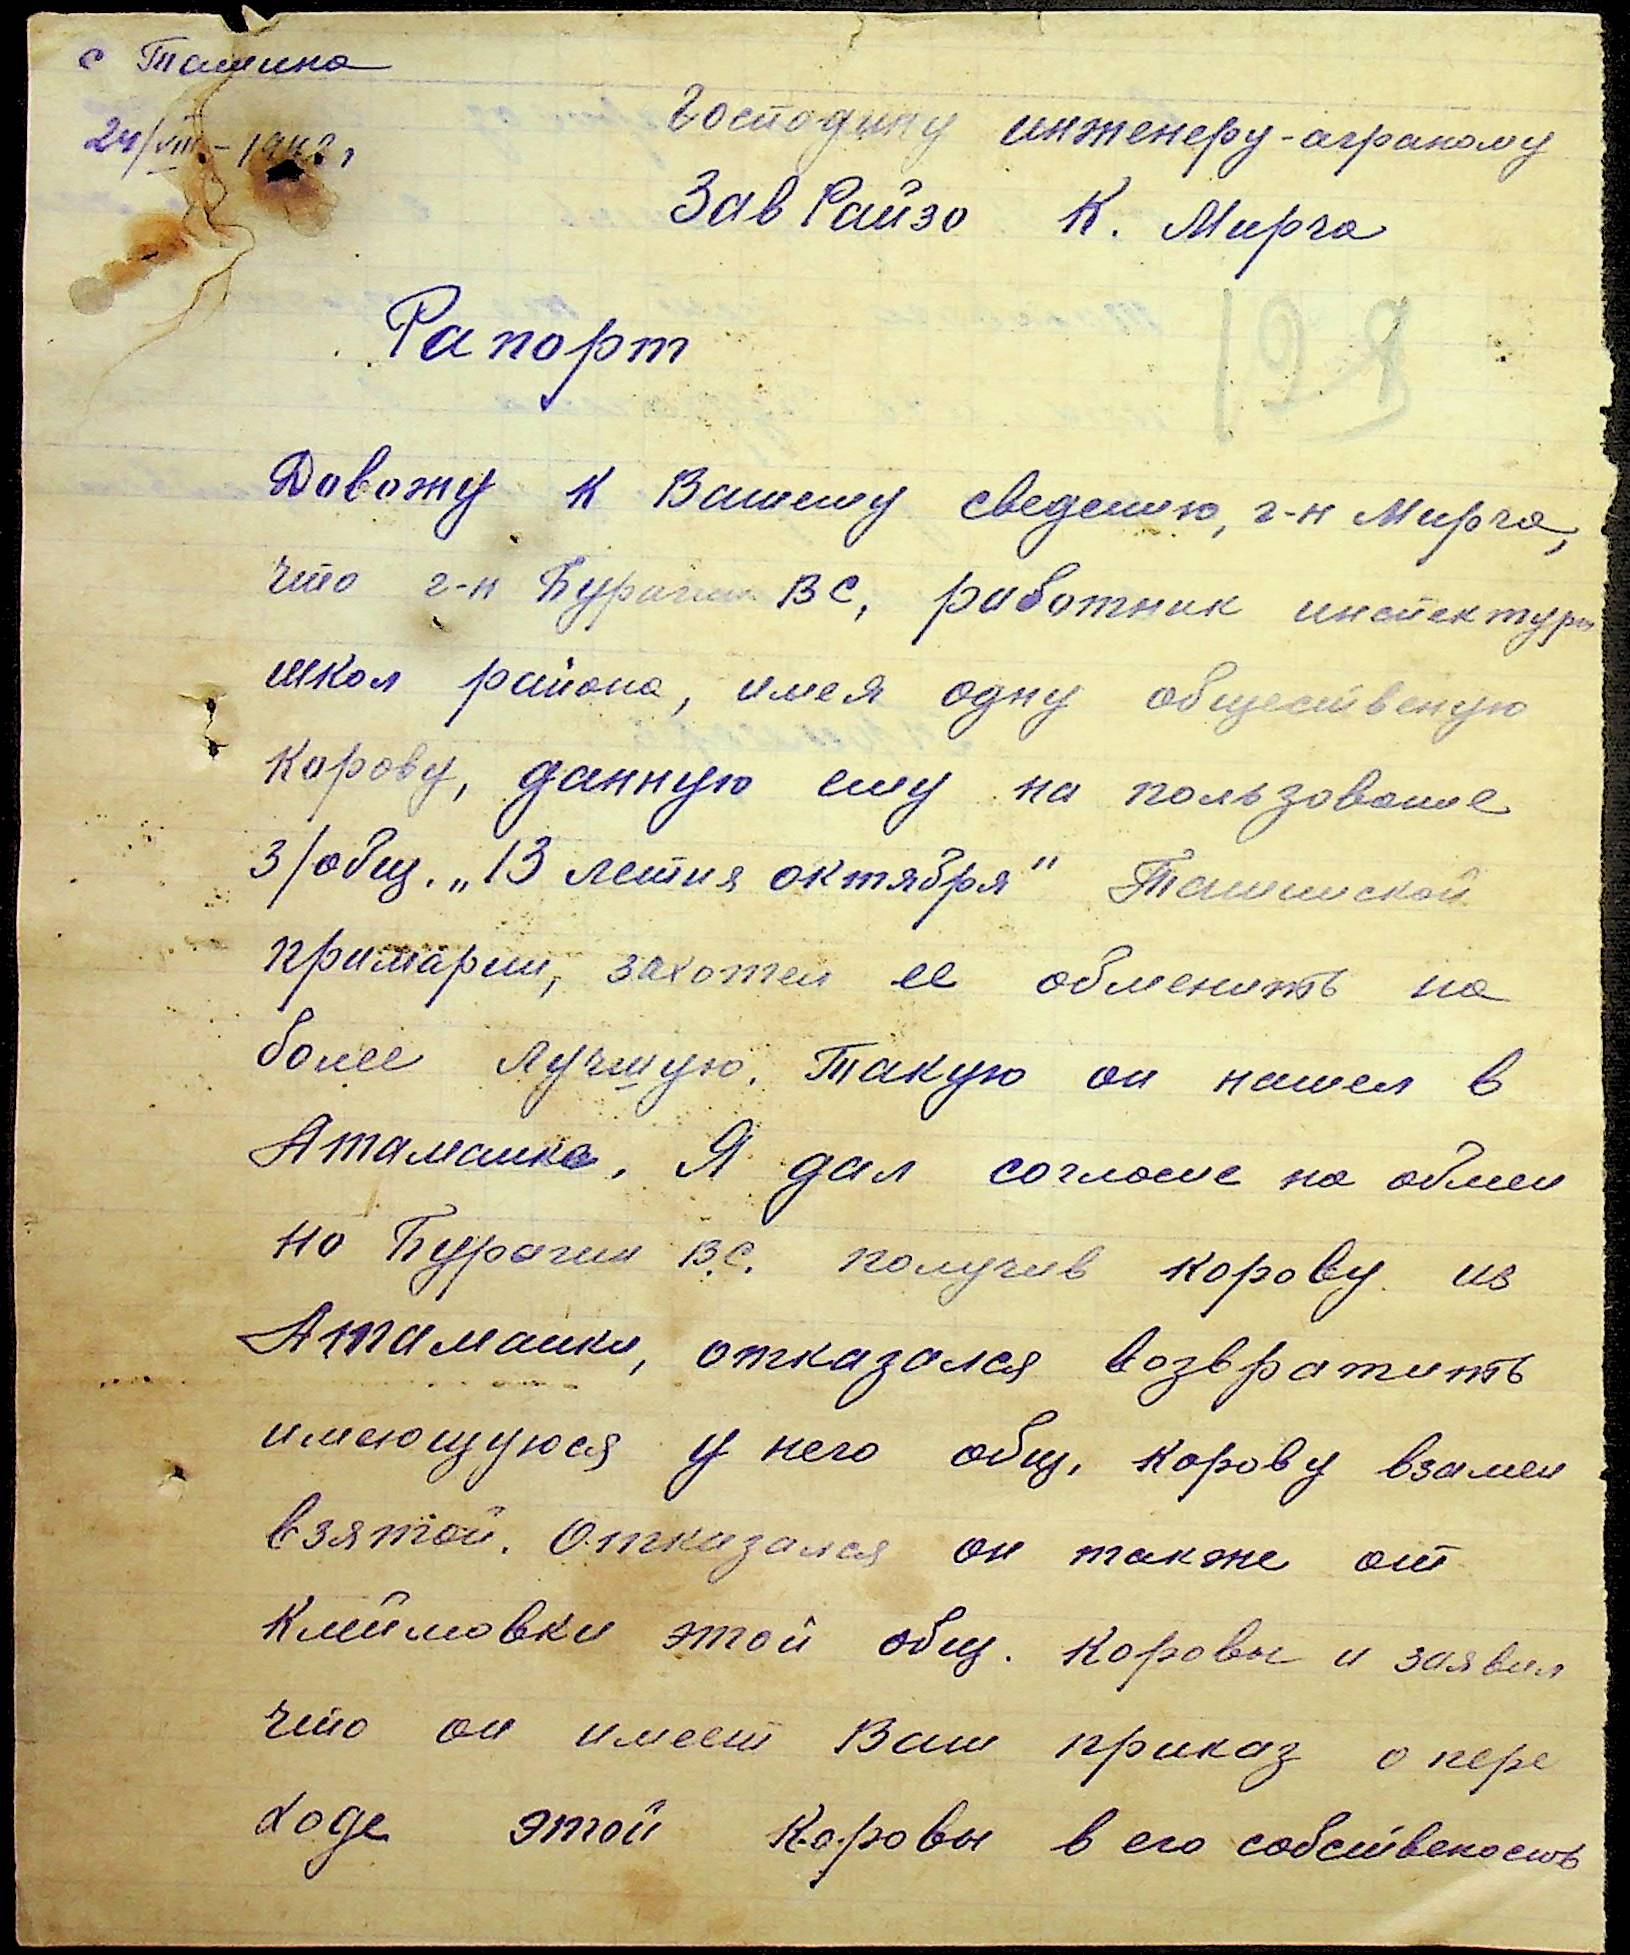 с Ташино
24/VIII - 1942 г
Господину инженеру-аграному
Зав Райзо К. Мирча
129
Рапорт
Довожу к Вашему сведению, г-н Мирча,
что г-н Бурагин ВС, работник инспектуры
школ района, имея одну общественую
корову, данную ему на пользование
з/общ. „13 летия октября" Ташинской
примарии, захотел ее обменить на
более лучшую. Такую он нашел в
Атаманке. Я дал согласие на обмен
но Бурагин В.С. получив корову из
Атаманки, отказался возвратить
имеющуюся у него общ. корову взамен
взятой. Отказался он также от
клеймовки этой общ. коровы и заявил
что он имеет Ваш приказ о пере
ходе этой коровы в его собственость